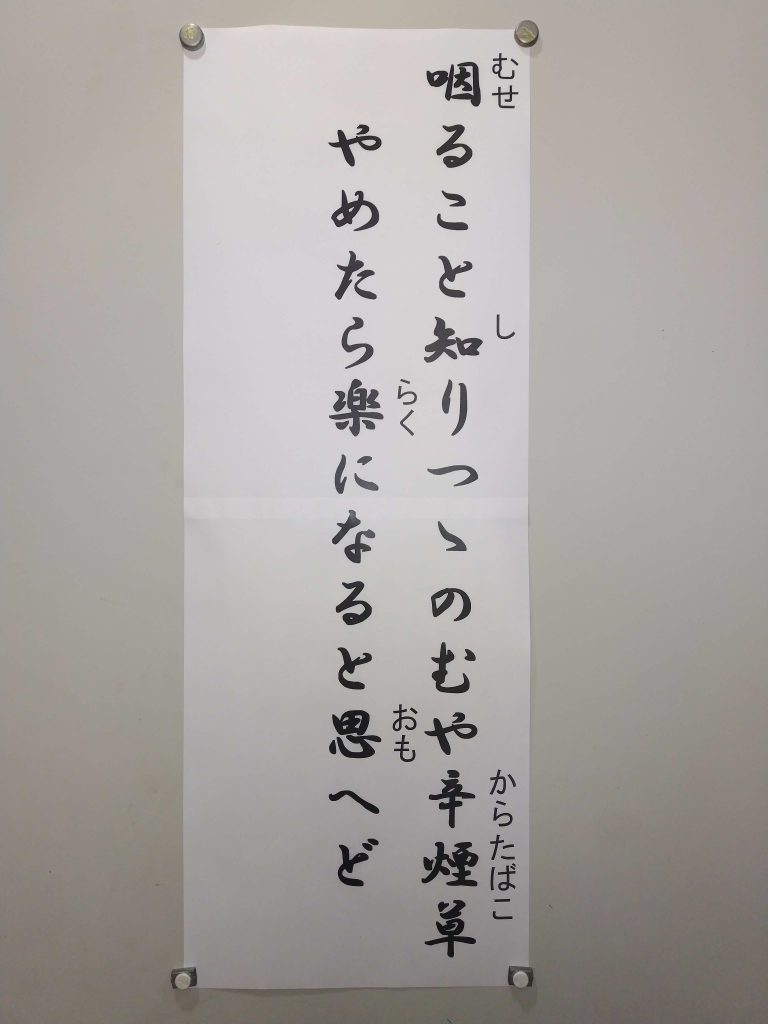 咽ることと知りつゝのむや辛煙草
やめたら楽になると思へど
むせ
し
からたばこ
らく
おも